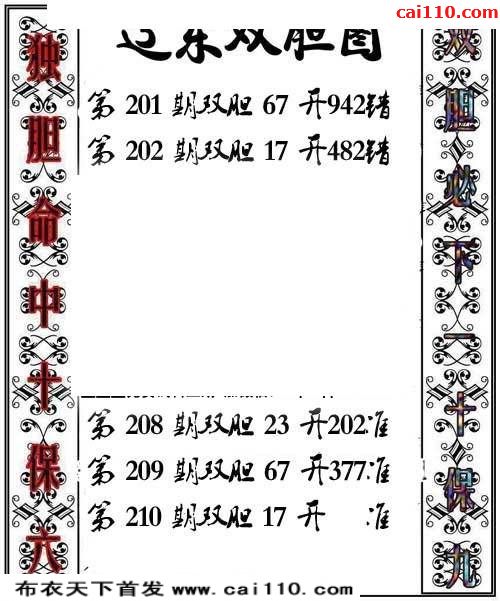 cai110.com
辽东双胆图
第 201 期双胆 67 开942错
第 202 期双胆 17 开482错
第 208 期双胆 23 开202准
第 209 期双胆 67 开377准
第 210 期双胆 17 开 准
独胆命中十保六
双胆必下一十保九
布衣天下首发 www.cai110.com